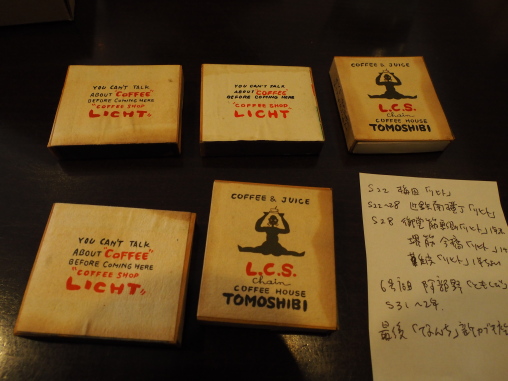 YOU CAN'T TALK
ABOUT "COFFEE"
BEFORE COMING HERE
"COFFEE SHOP
LICHT"
YOU CAN'T TALK
ABOUT "COFFEE"
BEFORE COMING HERE
"COFFEE SHOP
LICHT
COFFEE & JUICE
L.C.S.
Chain
COFFEE HOUSE
TOMOSHIBI
YOU CAN'T TALK
ABOUT "COFFEE"
BEFORE COMING HERE
"COFFEE SHOP
LICHT"
COFFEE & JUICE
L.C.S.
Chain
COFFEE HOUSE
TOMOSHIBI
S22 梅田「リヒト」
S22~28
S28 御堂筋
堺筋 今橋「リヒト」
6号目 阿部野「ともしび」
S31~2年
最後「なんち」